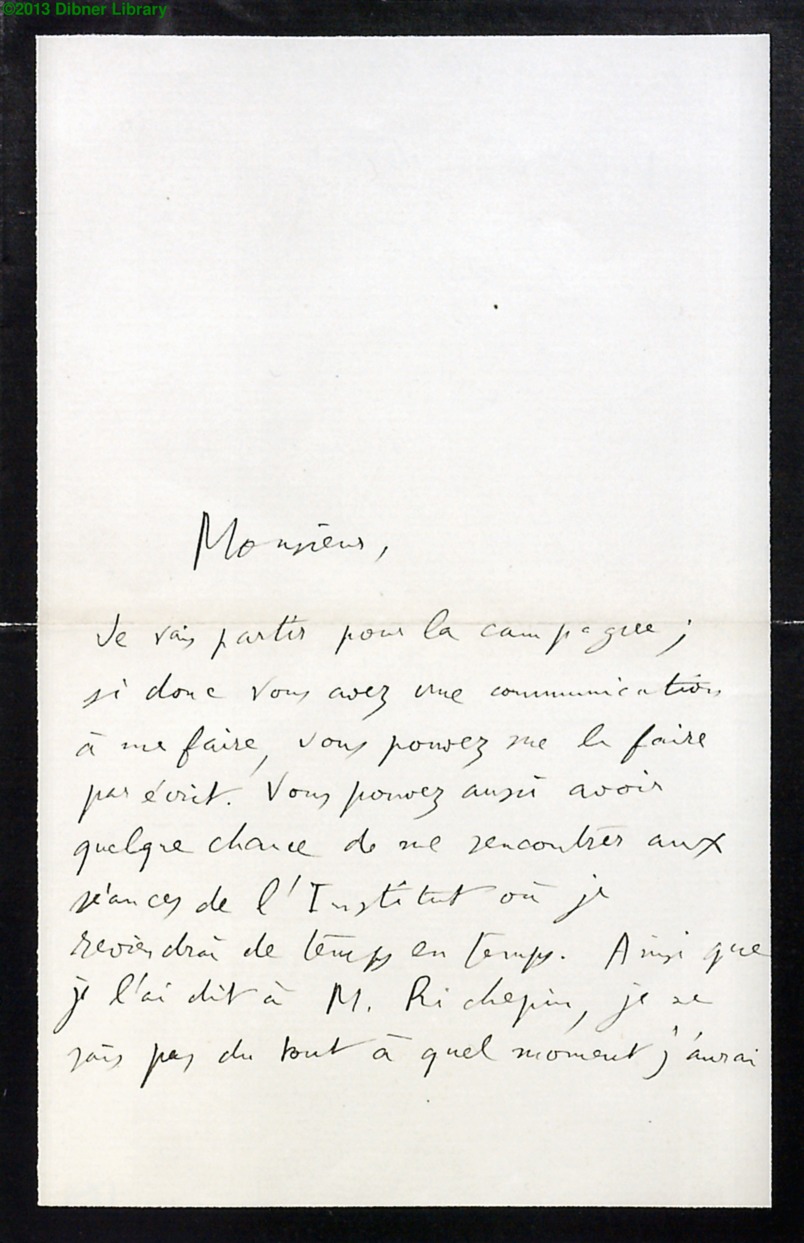 ©2013 Dibner Library
Monsieur,
Je vais partir pour la campagne ;
si donc vous avez une communication
à me faire, vous pouvez me la faire
par écrit. Vous pouvez aussi avoir
quelque chance de me rencontrer aux
séances de l'Institut où je
reviendrai de temps en temps. Ainsi que
je l'ai dit à M. Richepin, je ne
sais pas du tout à quel moment j'aurai